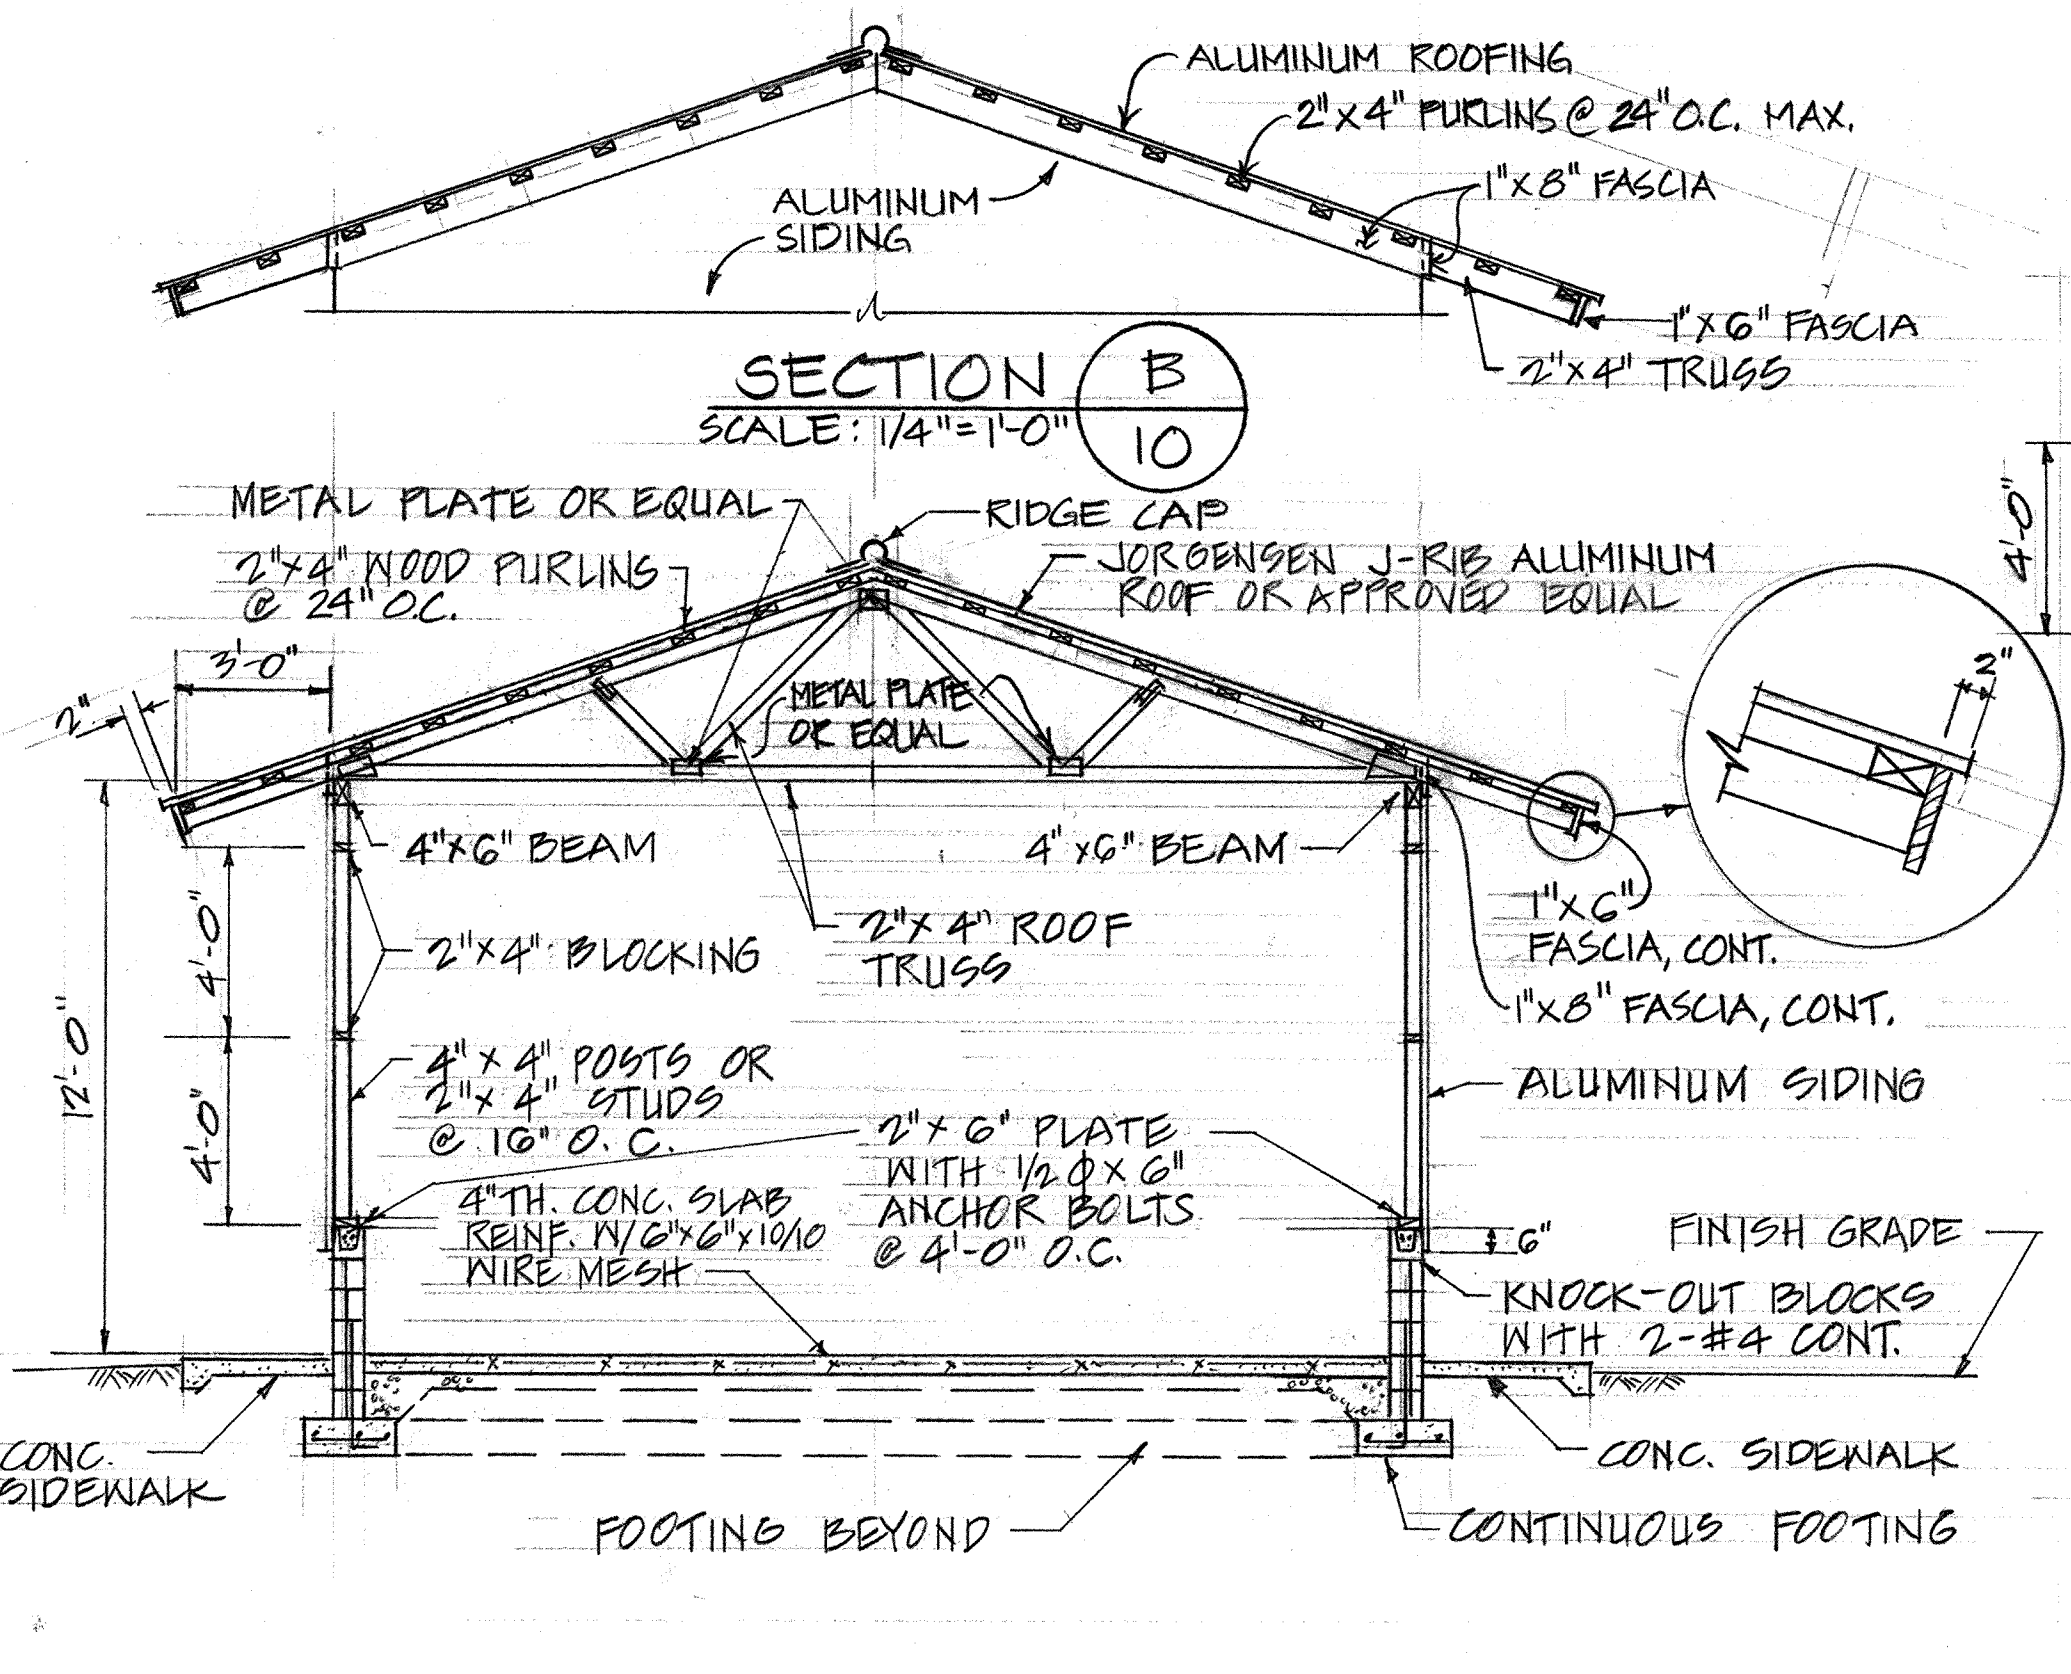 ALUMINUM ROOFING
2"x4" PURLINS @ 24" O.C. MAX.
1"x8" FASCIA
ALUMINUM
SIDING
1"x6" FASCIA
2"x4" TRUSS
SECTION
B
10
SCALE: 1/4"=1'-0"
METAL PLATE OR EQUAL
RIDGE CAP
2"x4" WOOD PURLINS
@ 24" O.C.
JORGENSEN J-RIB ALUMINUM
ROOF OR APPROVED EQUAL
4'-0"
3'-0"
2"
2"
METAL PLATE
OR EQUAL
4"x6" BEAM
4"x6" BEAM
1"x6"
FASCIA, CONT.
4'-0"
2"x4" BLOCKING
2"x4" ROOF
TRUSS
1"x8" FASCIA, CONT.
12'-0"
4"x4" POSTS OR
2"x4" STUDS
@ 16" O.C.
ALUMINUM SIDING
4'-0"
2"x6" PLATE
WITH 1/2 φ x 6"
ANCHOR BOLTS
@ 4'-0" O.C.
4" TH. CONC. SLAB
REINF. W/6"x6"x10/10
WIRE MESH
6"
FINISH GRADE
KNOCK-OUT BLOCKS
WITH 2-#4 CONT.
CONC.
SIDEWALK
CONC. SIDEWALK
FOOTING BEYOND
CONTINUOUS FOOTING